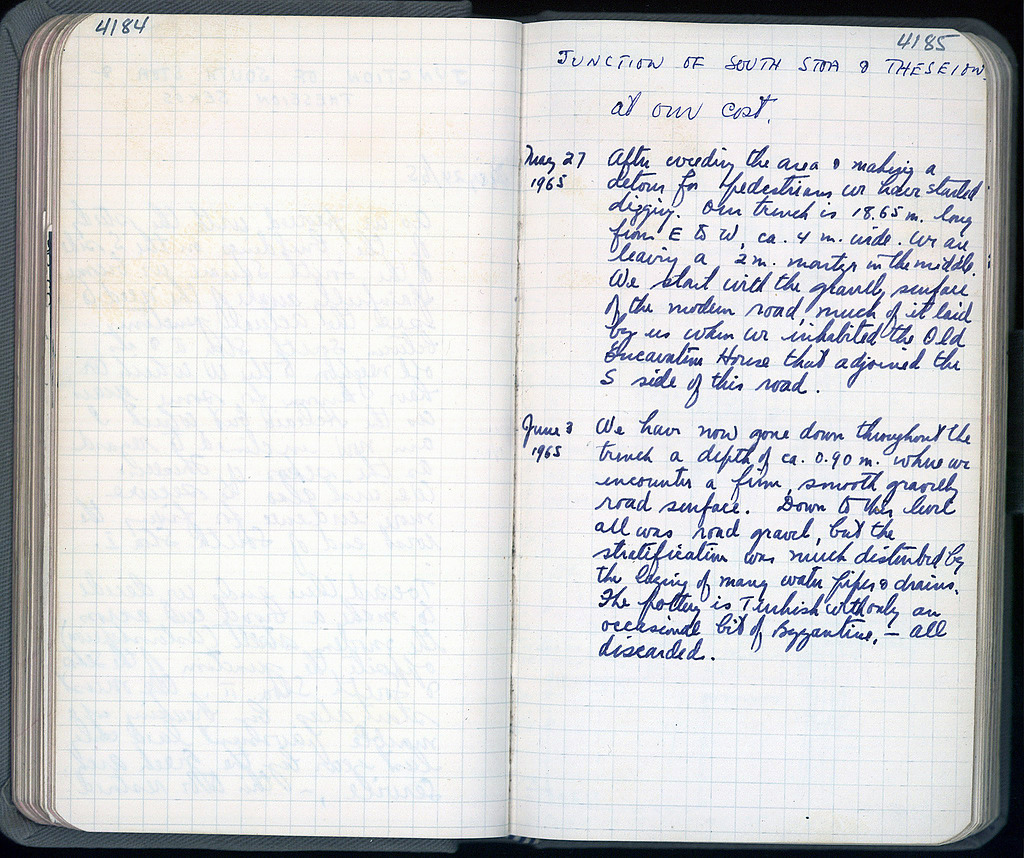 4184
4185
JUNCTION OF SOUTH STOA & THESEION
at our cost.
May 27
1965
After weeding the area & making a
detour for pedestrians we have started
digging. Our trench is 18.65 m. long
from E to W, ca. 4 m. wide. We are
leaving a 2 m. martyr in the middle.
We start with the gravelly surface
of the modern road, much of it laid
by us when we inhabited the Old
Excavation House that adjoined the
S side of this road.
June 3
1965
We have now gone down throughout the
trench a depth of ca. 0.90 m. where we
encounter a firm, smooth gravelly
road surface. Down to this level
all was road gravel, but the
stratification was much disturbed by
the laying of many water pipes & drains.
The pottery is Turkish with only an
occasional bit of Byzantine, – all
discarded.